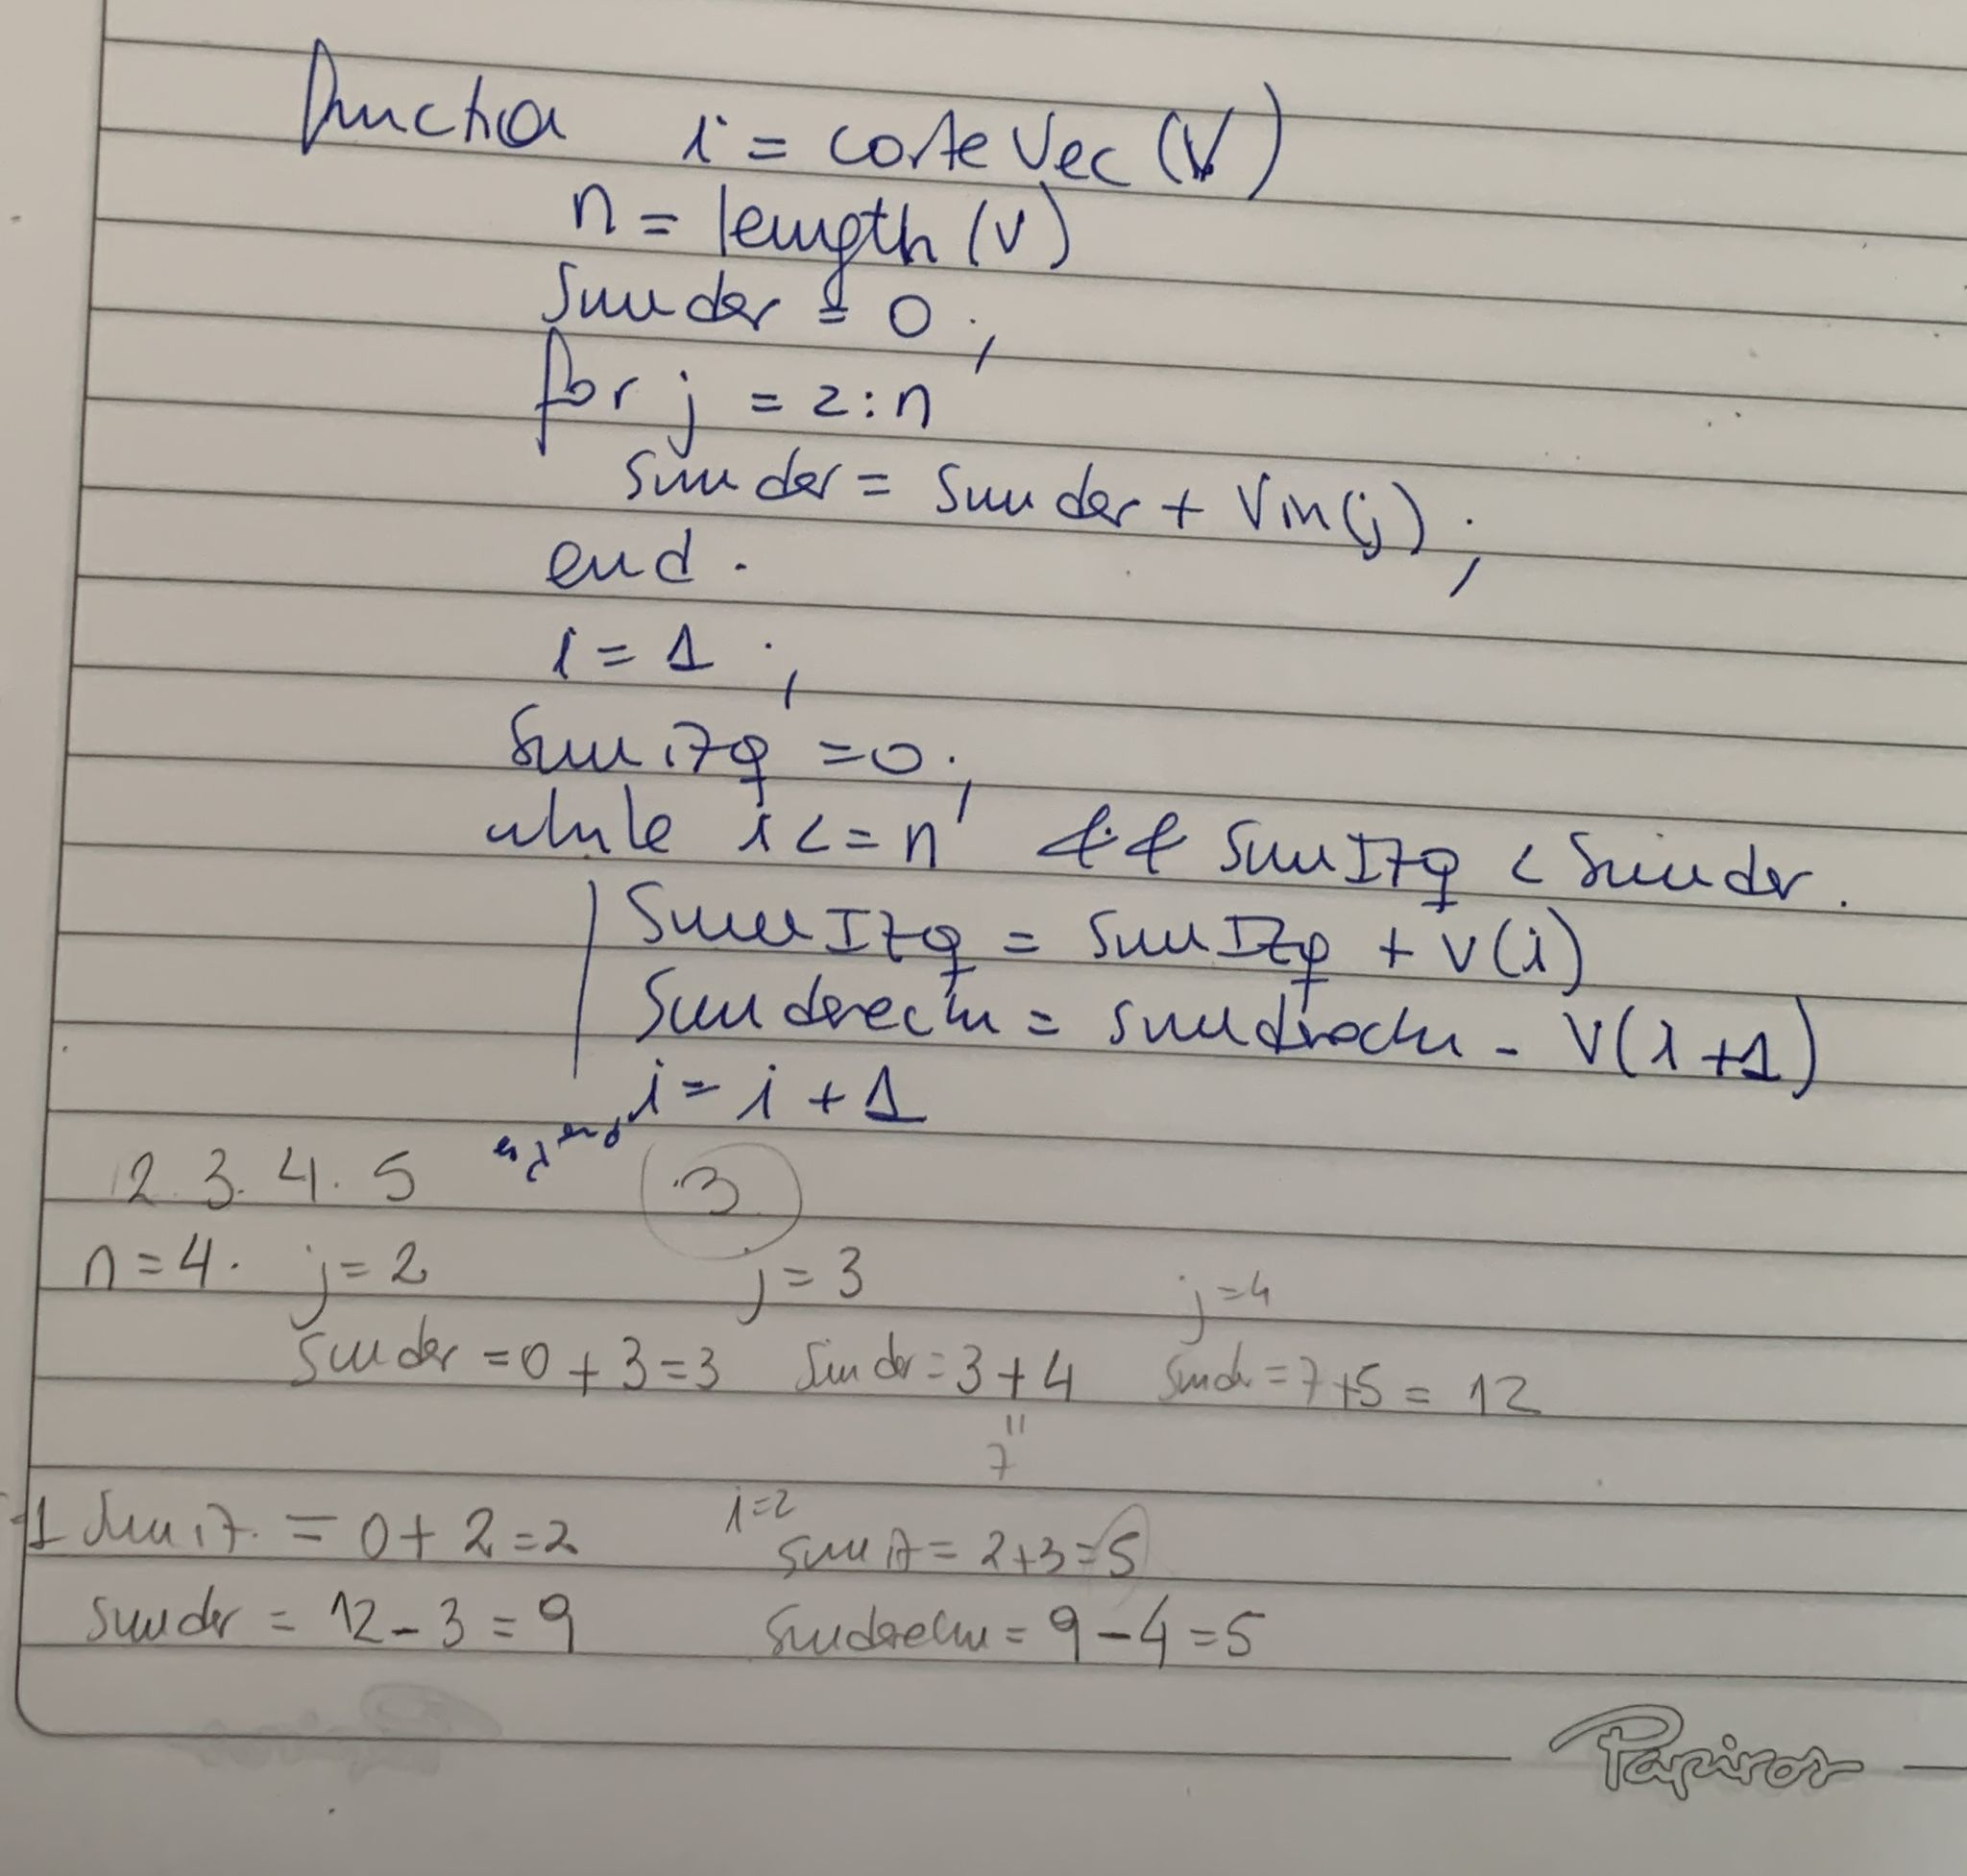 function i = corteVec (V)
n = length (v)
Sumder = 0 ;
for j = 2:n
sumder = Sumder + Vin(j) ;
end.
i = 1 ;
Sumizq = 0 ;
while i <= n && SumIzq < Sumder.
SumIzq = SumIzq + v(i)
Sumderecha = sumdrecha - V(i+1)
i = i + 1
end
2 3. 4. 5 3
n = 4. j = 2 j = 3 j = 4
Sumder = 0 + 3 = 3 Sumder = 3 + 4 Sumder = 7+5 = 12
"
7
1 Sumiz. = 0 + 2 = 2 i=2 sumiz = 2+3=5
sumder = 12 - 3 = 9 Sumderecha = 9 - 4 = 5
Papiros